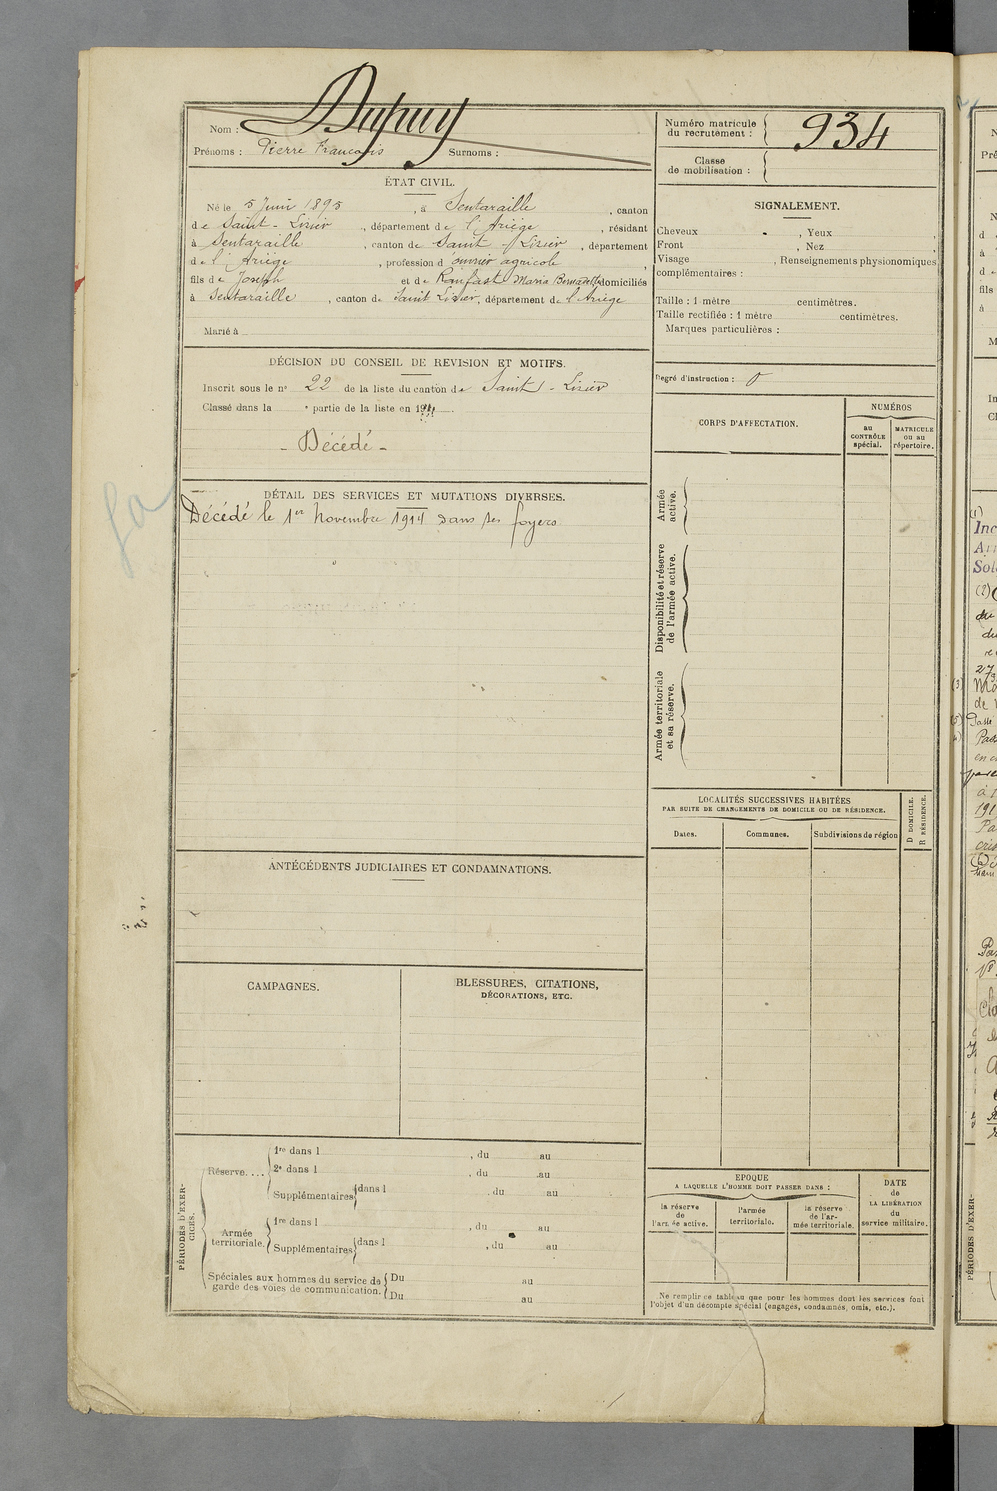 Nom : Dupuy
Prénoms : Pierre François Surnoms :
Numéro matricule
du recrutement : 934
Classe
de mobilisation :
ÉTAT CIVIL.
Né le 5 Juin 1895, à Sentaraille, canton
de Saint-Lizier, département de l'Ariège, résidant
à Sentaraille, canton de Saint-Lizier, département
de l'Ariège, profession d'ouvrier agricole,
fils de Joseph et de Ronfast Maria Bernadette domiciliés
à Sentaraille, canton de Saint Lizier, département de l'Ariège
Marié à
SIGNALEMENT.
Cheveux , Yeux ,
Front , Nez
Visage , Renseignements physionomiques
complémentaires :
Taille : 1 mètre centimètres.
Taille rectifiée : 1 mètre centimètres.
Marques particulières :
Degré d'instruction : 0
DÉCISION DU CONSEIL DE REVISION ET MOTIFS.
Inscrit sous le n° 22 de la liste du canton de Saint-Lizier
Classé dans la e partie de la liste en 19
- Décédé -
DÉTAIL DES SERVICES ET MUTATIONS DIVERSES.
Décédé le 1er Novembre 1914 dans ses foyers
CORPS D'AFFECTATION.
NUMÉROS
au
CONTRÔLE
spécial.
MATRICULE
ou au
répertoire.
Armée
active.
Disponibilité et réserve
de l'armée active.
Armée territoriale
et sa réserve.
LOCALITÉS SUCCESSIVES HABITÉES
PAR SUITE DE CHANGEMENTS DE DOMICILE OU DE RÉSIDENCE.
Dates. Communes. Subdivisions de région
D DOMICILE.
R RÉSIDENCE.
ANTÉCÉDENTS JUDICIAIRES ET CONDAMNATIONS.
CAMPAGNES.
BLESSURES, CITATIONS,
DÉCORATIONS, ETC.
PÉRIODES D'EXER-
CICES.
Réserve....
1re dans l , du au
2e dans l , du au
Supplémentaires dans l , du au
Armée
territoriale.
1re dans l , du au
Supplémentaires dans l , du au
Spéciales aux hommes du service de
garde des voies de communication.
Du au
Du au
EPOQUE
A LAQUELLE L'HOMME DOIT PASSER DANS :
la réserve
de
l'armée active.
l'armée
territoriale.
la réserve
de l'ar-
mée territoriale.
DATE
de
LA LIBÉRATION
du
service militaire.
Ne remplir ce tableau que pour les hommes dont les services font
l'objet d'un décompte spécial (engagés, condamnés, omis, etc.).
PÉRIODES D'EXER-